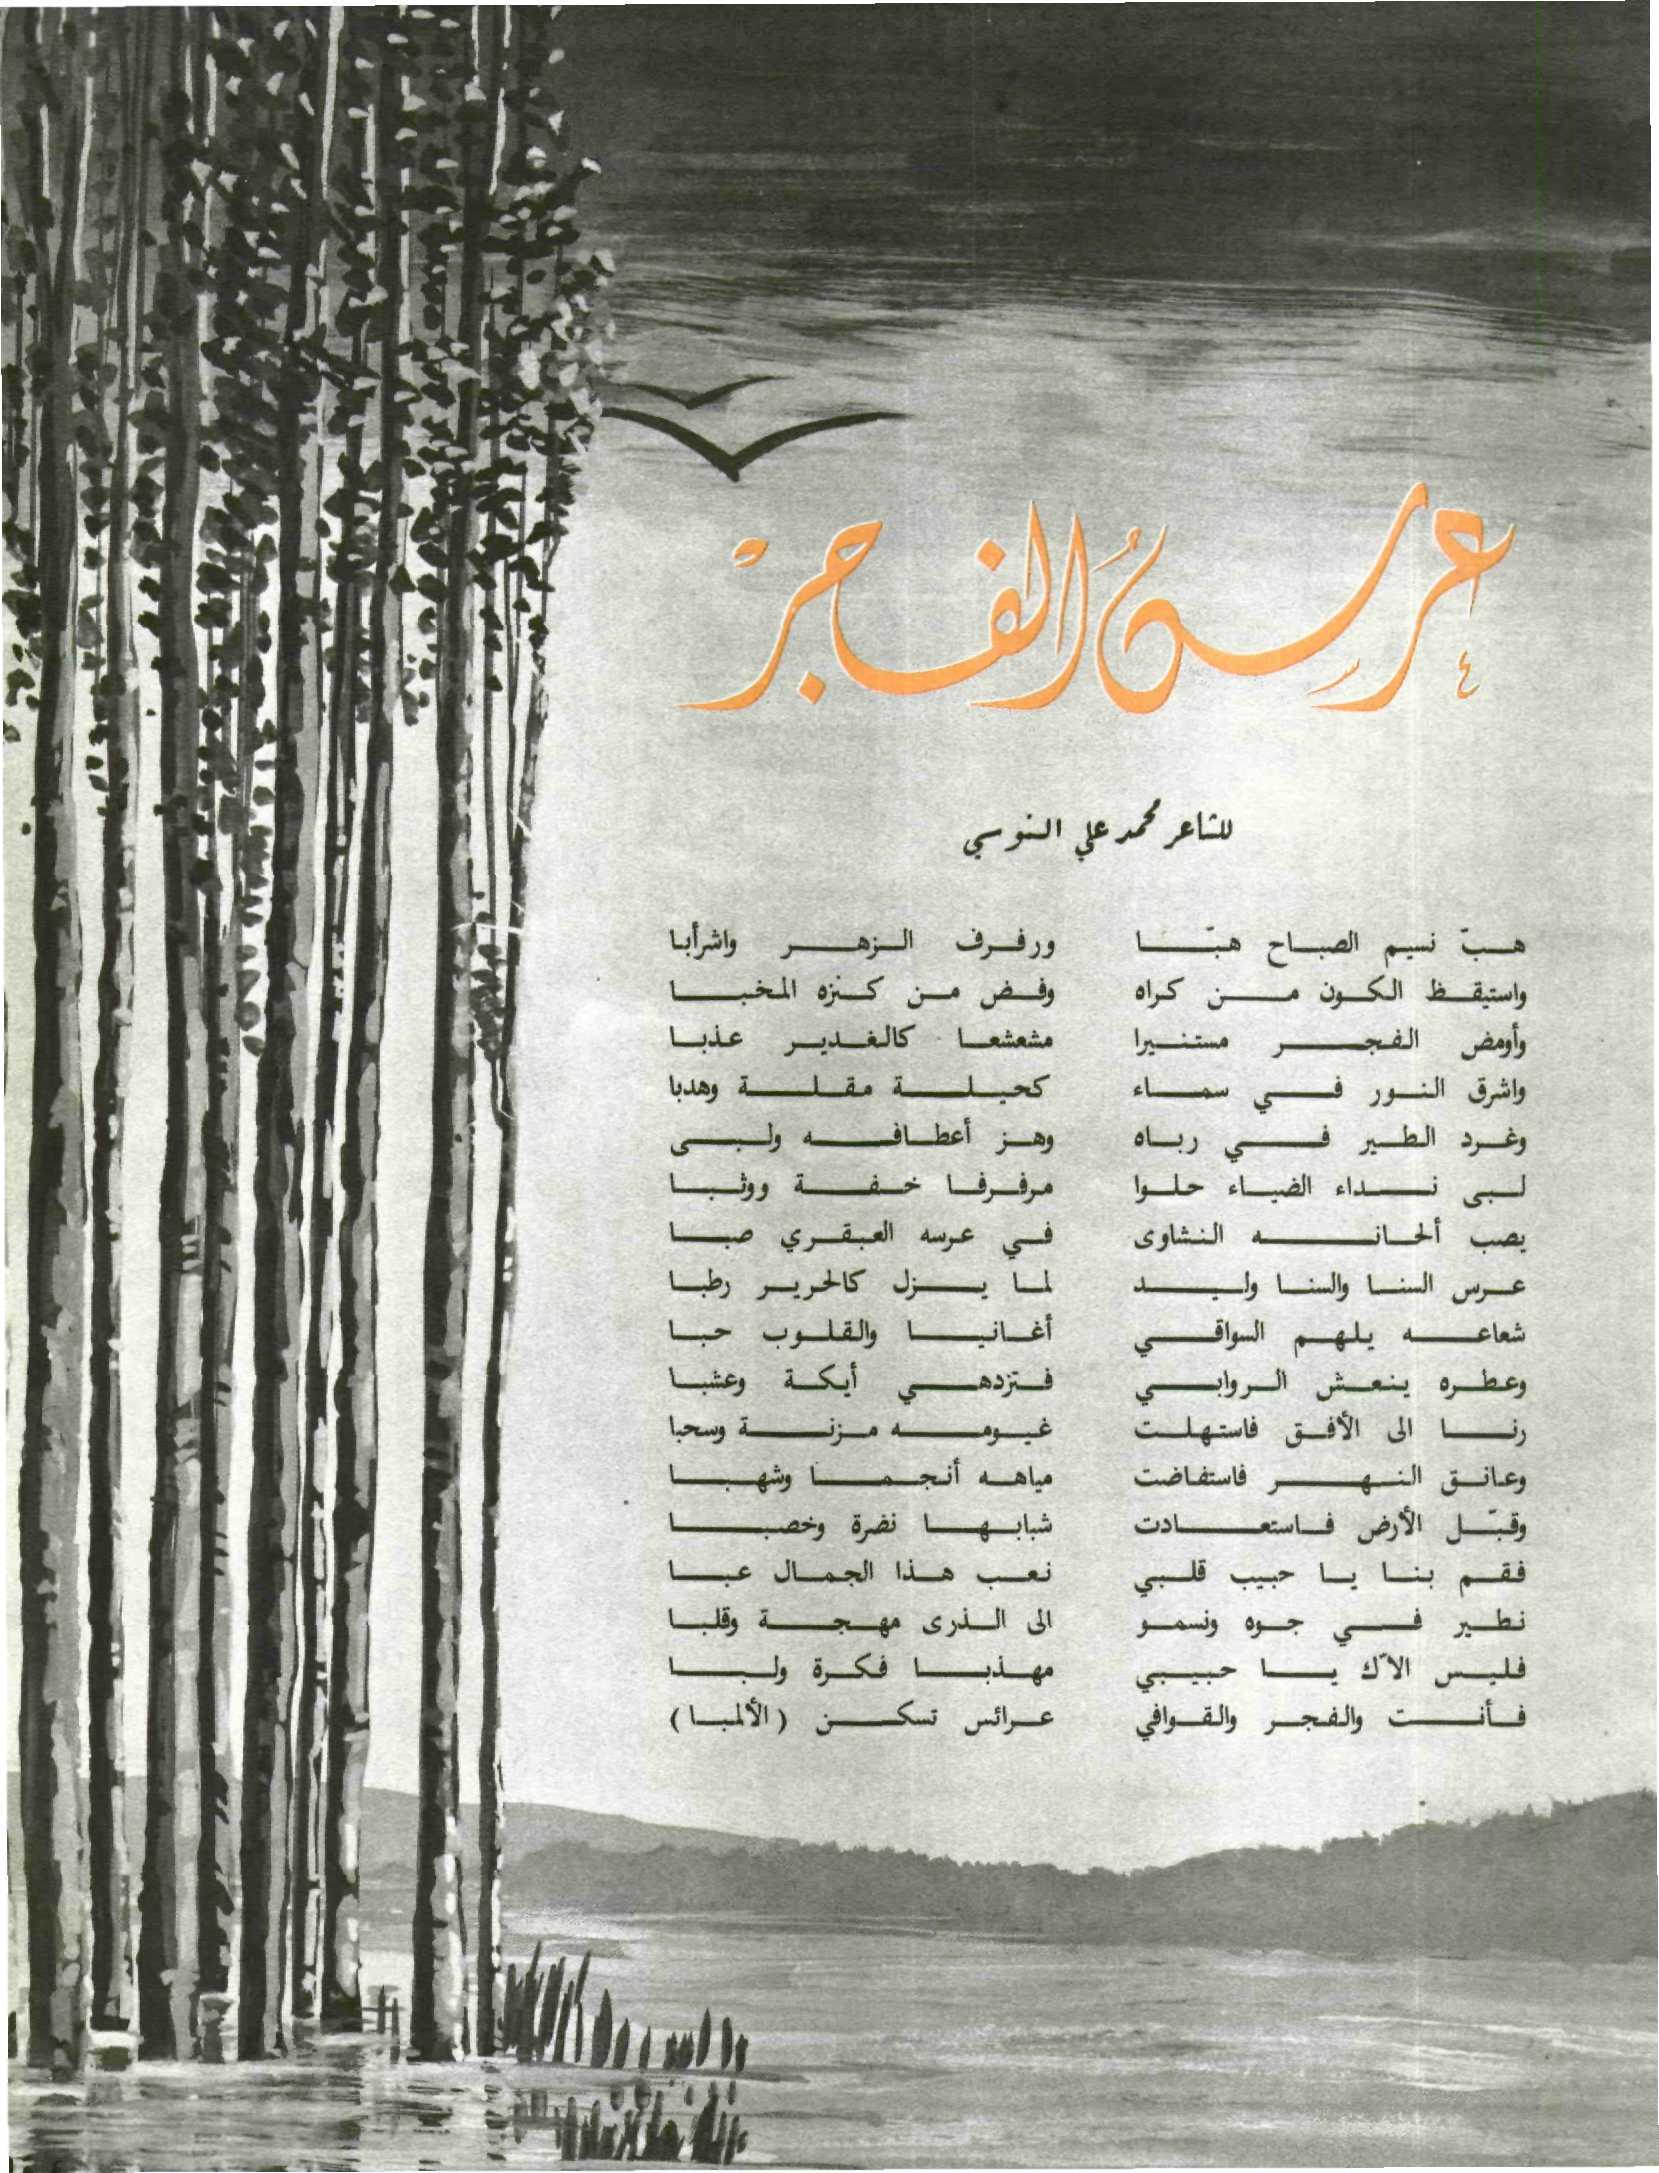 عرس الفجر
للشاعر محمد علي السنوسي
هبّ نسيم الصباح هبّا ورفرف الزهر واشرأبا
واستيقظ الكون من كراه وفض من كنزه المخبا
وأومض الفجر مستنيرا مشعشعا كالغدير عذبا
واشرق النور في سماء كحيلة مقلة وهدبا
وغرد الطير في رباه وهز أعطافه ولبى
لبى نداء الضياء حلوا مرفرفا خفة ووثبا
يصب ألحانه النشاوى في عرسه العبقري صبا
عرس السنا والسنا وليد لما يزل كالحرير رطبا
شعاعه يلهم السواقي أغانيا والقلوب حبا
وعطره ينعش الروابي فتزدهي أيكة وعشبا
رنا الى الأفق فاستهلت غيومه مزنة وسحبا
وعانق النهر فاستفاضت مياهه أنجما وشهبا
وقبّل الأرض فاستعادت شبابها نضرة وخصبا
فقم بنا يا حبيب قلبي نعب هذا الجمال عبا
نطير في جوه ونسمو الى الذرى مهجة وقلبا
فليس الاّك يا حبيبي مهذبا فكرة ولبا
فأنت والفجر والقوافي عرائس تسكن (الألمبا)